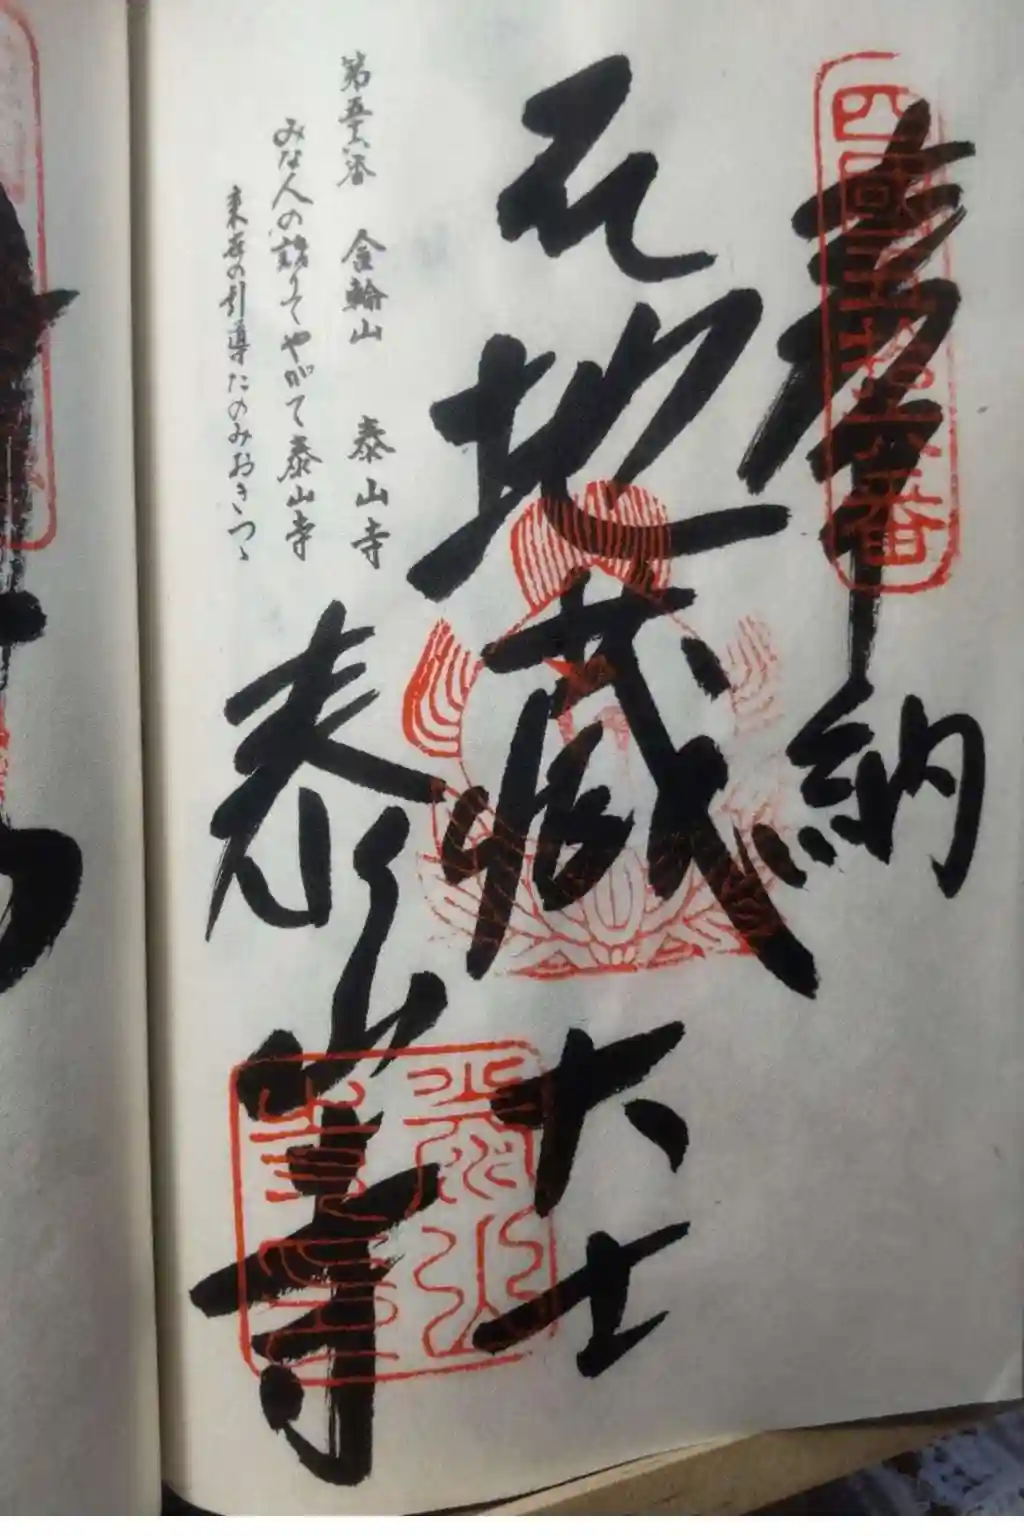 奉納
四國五拾六番
地蔵大士
泰山寺
第五十六番 金輪山 泰山寺
みな人の詣りてやがて泰山寺
来世の引導たのみおきつゝ